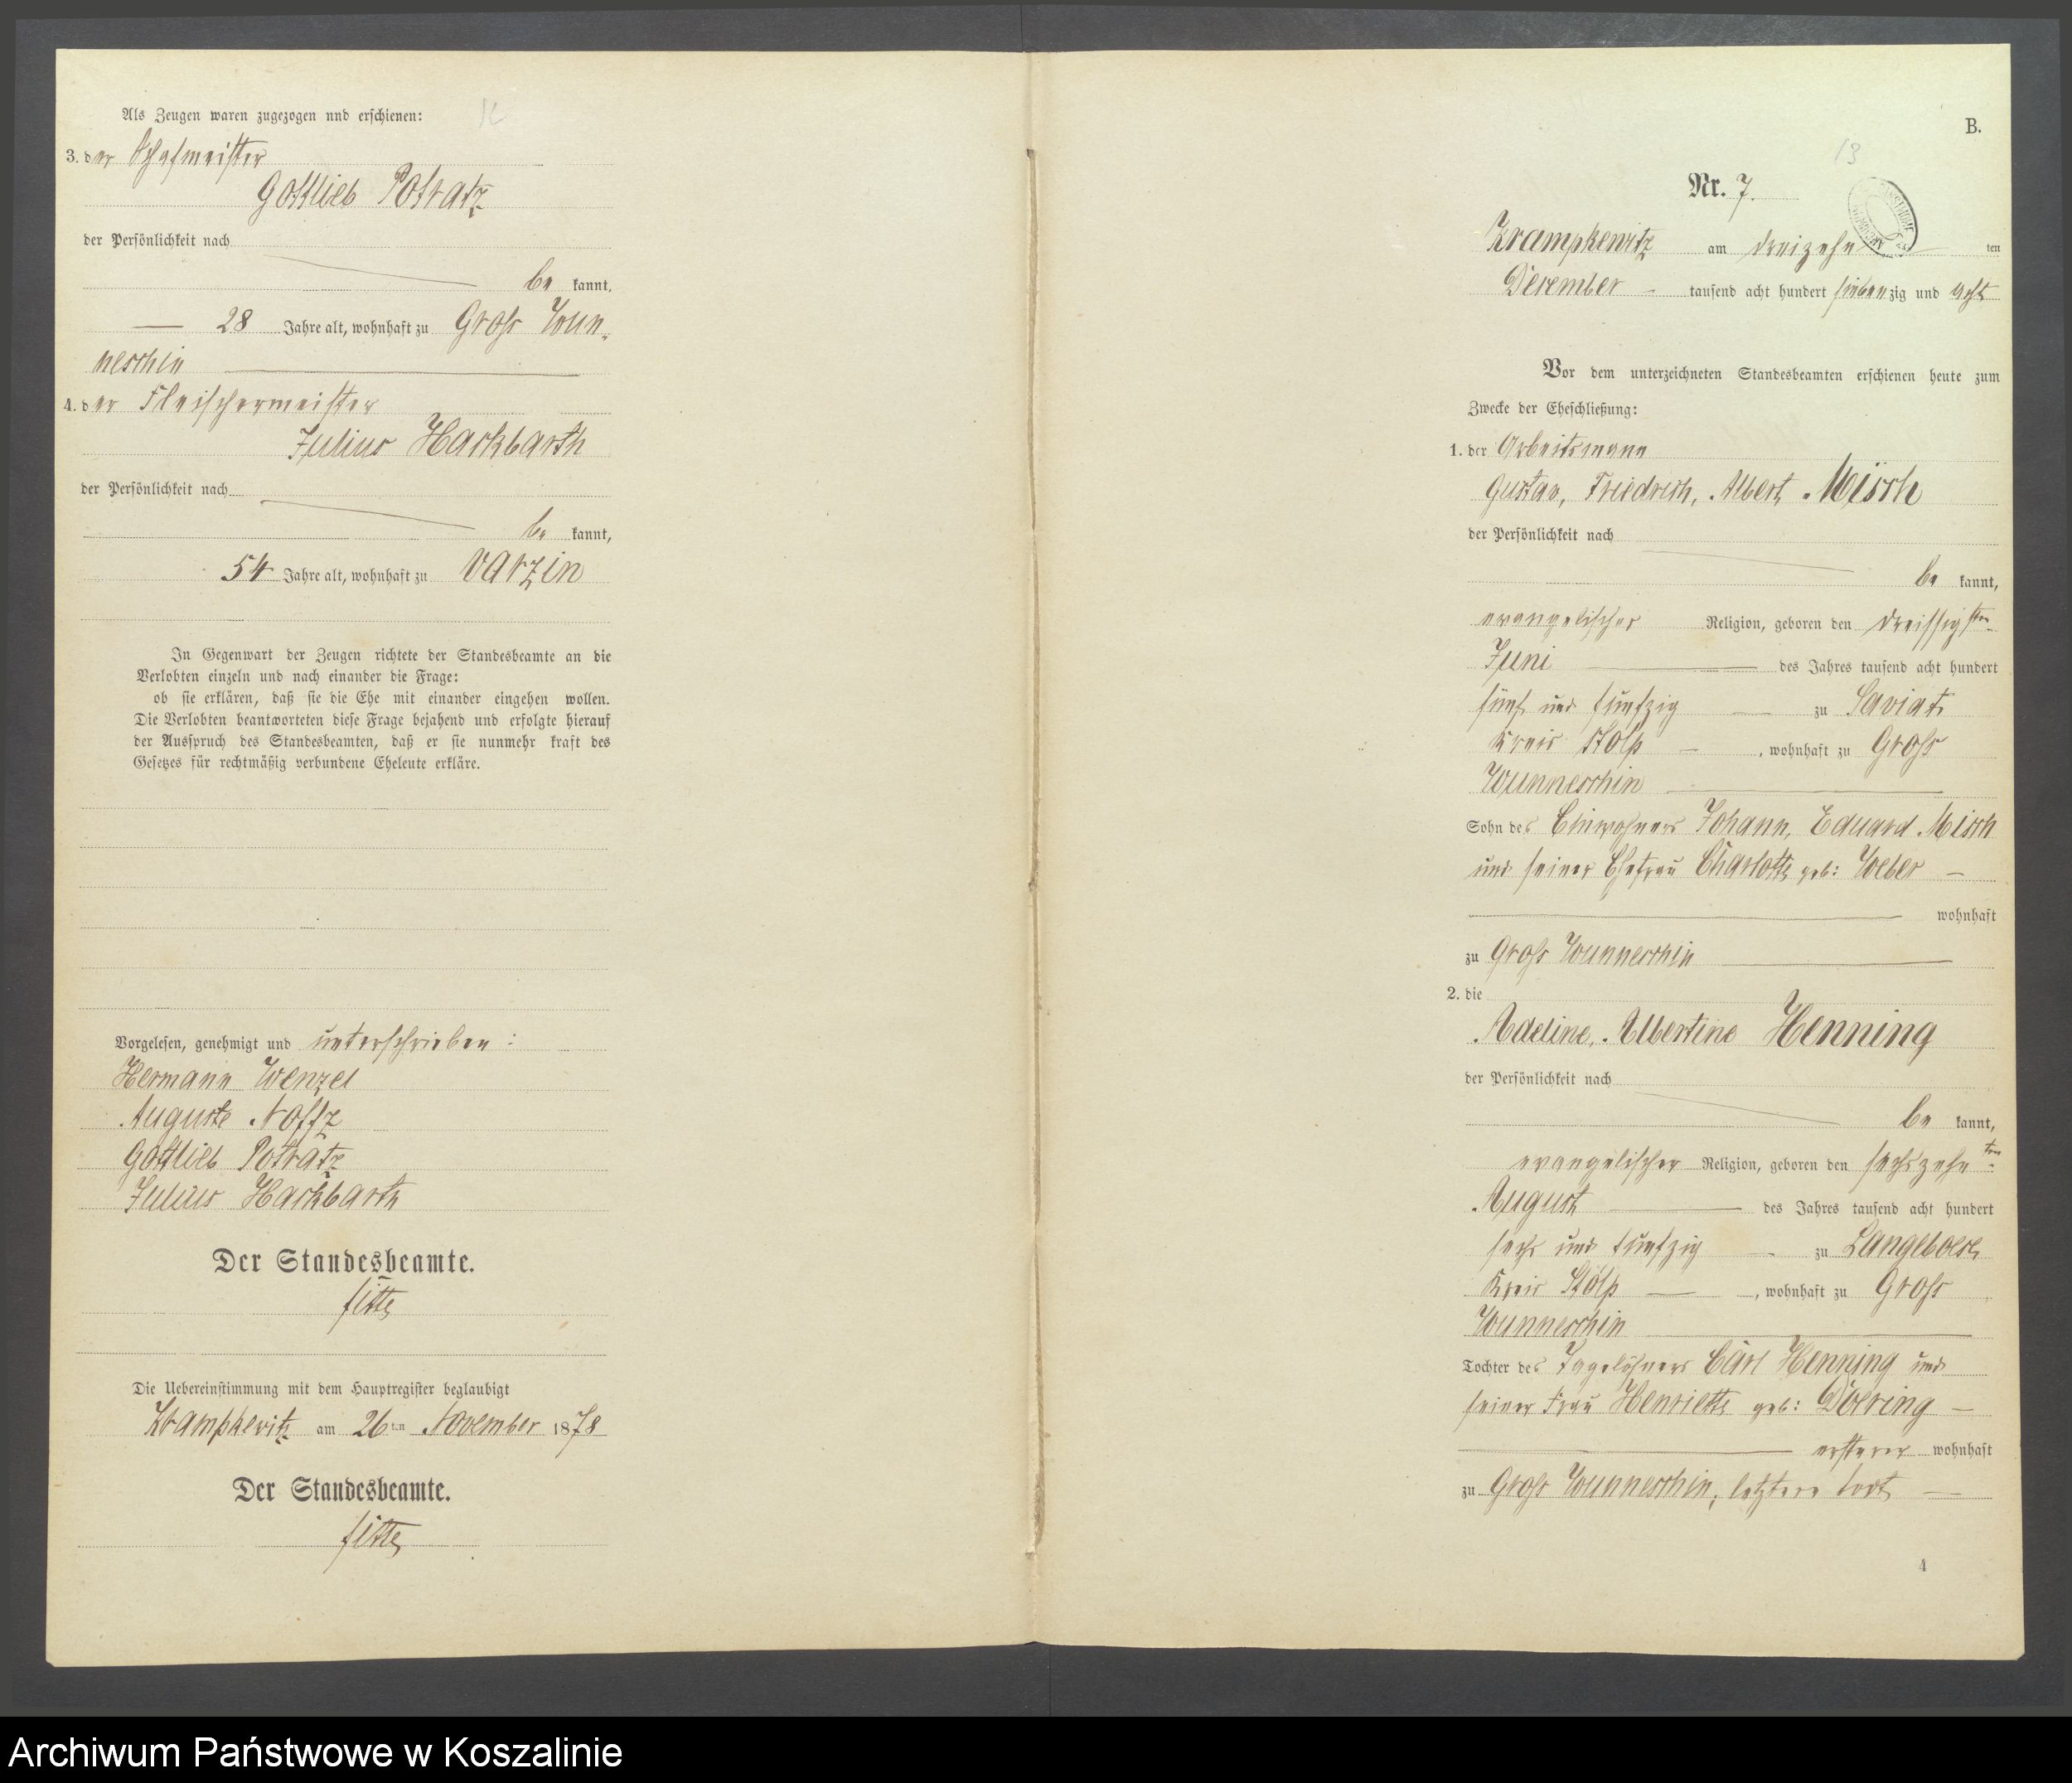 Als Zeugen waren zugezogen und erschienen:
3. der Schafmeister
Gottlieb Potratz
der Persönlichkeit nach
be kannt,
28 Jahre alt, wohnhaft zu Gross Wun-
neschin
4. der Fleischermeister
Julius Hackbarth
der Persönlichkeit nach
be kannt,
54 Jahre alt, wohnhaft zu Varzin
In Gegenwart der Zeugen richtete der Standesbeamte an die
Verlobten einzeln und nach einander die Frage:
ob sie erklären, daß sie die Ehe mit einander eingehen wollen.
Die Verlobten beantworteten diese Frage bejahend und erfolgte hierauf
der Ausspruch des Standesbeamten, daß er sie nunmehr kraft des
Gesetzes für rechtmäßig verbundene Eheleute erkläre.
Vorgelesen, genehmigt und unterschrieben:
Hermann Wenzel
Auguste Noffz
Gottlieb Potratz
Julius Hackbarth
Der Standesbeamte.
Die Uebereinstimmung mit dem Hauptregister beglaubigt
Krampkewitz am 26ten November 1878
Der Standesbeamte.
B.
13
Nr. 7.
Krampkewitz am dreizehn ten
December tausend acht hundert siebenzig und acht
Vor dem unterzeichneten Standesbeamten erschienen heute zum
Zwecke der Eheschließung:
1. der Arbeitsmann
Gustav, Friedrich, Albert Misch
der Persönlichkeit nach
be kannt,
evangelischer Religion, geboren den dreissigsten
Juni des Jahres tausend acht hundert
fünf und funfzig zu Saviat
Kreis Stolp, wohnhaft zu Gross
Wunneschin
Sohn des Einwohners Johann, Eduard Misch
und seiner Ehefrau Charlotte geb: Weber
wohnhaft
zu Gross Wunneschin
2. die
Adeline, Albertine Henning
der Persönlichkeit nach
be kannt,
evangelischer Religion, geboren den sechszehnten
August des Jahres tausend acht hundert
sechs und funfzig zu Langeboese
Kreis Stolp, wohnhaft zu Gross
Wunneschin
Tochter des Tagelöhners Carl Henning und
seiner Frau Henriette geb: Döering
ersterer wohnhaft
zu Gross Wunneschin, letztere todt
4
Archiwum Państwowe w Koszalinie